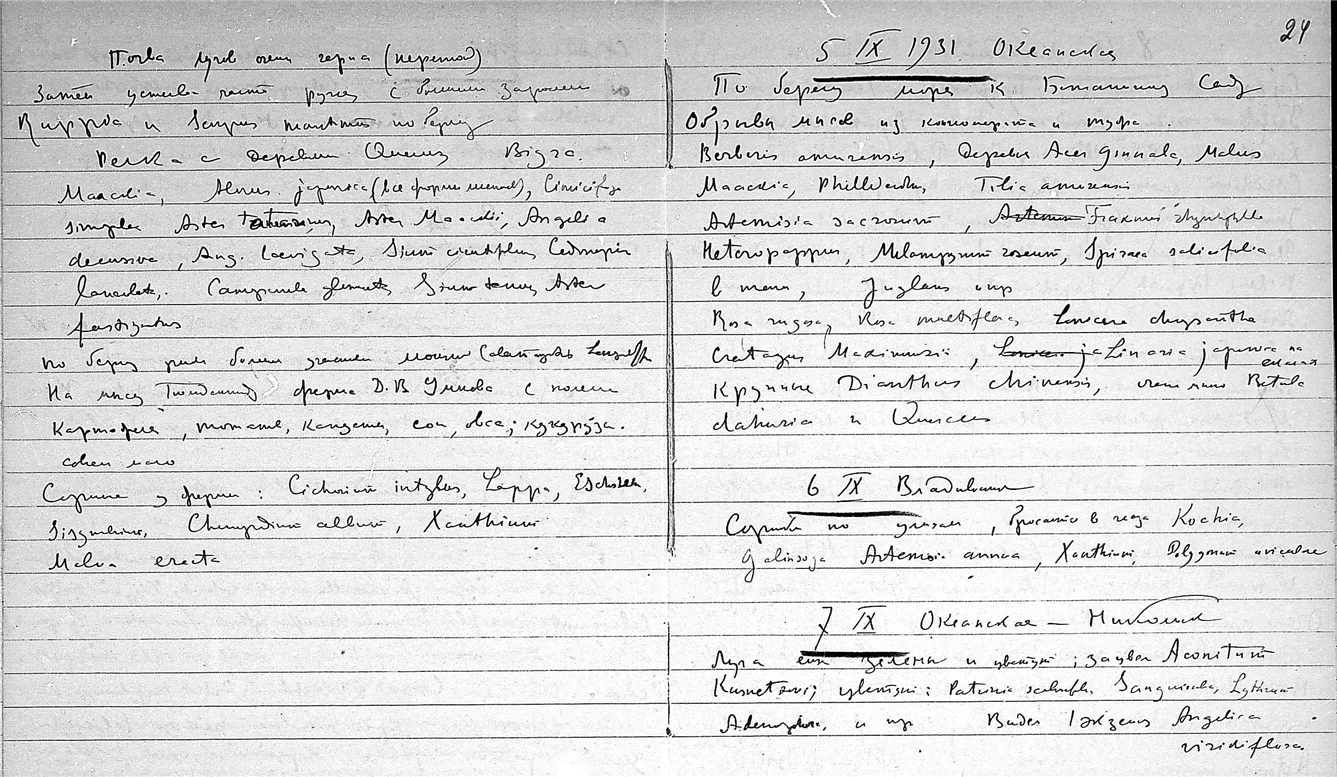 Почва лугов очень черна (перегной)
Затем устьева часть ручья с большим зарослем
и по берегу
Релка с деревьями Quercus
Maackia, Alnus japonica (все формы), Cimicifuga
simplex Aster tataricus, Aster Maackii, Angelica
decursiva, Ang. laevigata, Sium
lanceolata. Campanula glomerata Sium tenue Aster
fastigiatus
по берегу реки более Calamagrostis Langsdorffii
На мысу ферма Д.В с полем
картофеля, томата, капусты, сои, овса, кукуруза.
сена мало
Сорные у фермы: Cichorium intybus, Lappa,
Sisymbrium, Chenopodium album, Xanthium
Malva erecta
24
5 IX 1931. Океанская
По берегу моря к Ботаничес Саду
Обрывы мысов из конгломерата и туфа.
Berberis amurensis, Деревья Acer Ginnala, Malus
Maackia, Phillodendron, Tilia amurensis
Artemisia sacrorum, Fraxinus rhynchophylla
Heteropappus, Melampyrum roseum, Spiraea salicifolia
Juglans
Rosa rugosa, Rosa multiflora, Lonicera chrysantha
Crataegus Maximowiczii, Linaria japonica на
скалах
Крупные Dianthus chinensis, очень мало Betula
dahurica и Quercus
6 IX Владивосток
Сорные по улицам, бросаются в глаза Kochia,
Galinsoga Artemisia annua, Xanthium, Polygonum aviculare
7 IX Океанская — Никольск
Луга еще зелены и цветут; зацвел Aconitum
Kusnetzovi; цветут: Patrinia scabiosifolia Sanguisorba, Lythrum
Adenophora, и пр Виден Angelica
viridiflora